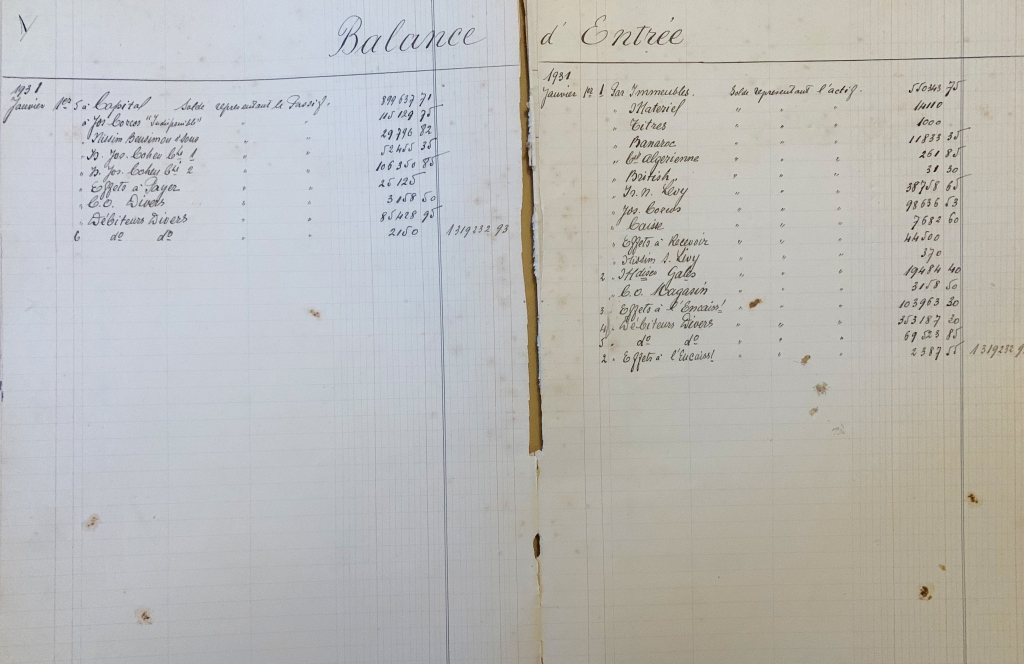 Balance
1931
Janvier 1er 5 à Capital Solde représentant le Passif. 899637 71
à Jos Corcos "Indisponible" " " 115129 75
" Nissim Bensimon & Sons " " 29796 82
" H. Jos. Cohen Cte 1 " " 52455 35
" H. Jos. Cohen Cte 2 " " 106350 85
" Effets à Payer " " 25125
" C.O. Divers " " 3158 50
" Débiteurs Divers " " 85428 95
6 do do " " 2150 1319232 93
d' Entrée
1931
Janvier 1er 1 Par Immeubles. Solde représentant l'actif. 550343 75
" Matériel " " " 14110
" Titres " " " 1000
" Banaroc " " " 11833 35
" Cie Algérienne " " " 261 85
" British " " " " 31 30
" Is. N. Levy " " " 38758 65
" Jos. Corcos " " " 98636 53
" Caisse " " " 7682 60
" Effets à Recevoir " " " 44500
" Nissim S. Lévy " " " 370
2 " Mdises Gales " " " 19484 40
" C.O. Magasin " " " 3158 50
3 " Effets à l'Encaisst " " " 103963 30
4 " Débiteurs Divers " " " 353187 20
5 " do do " " " 69523 85
2 " Effets à l'Encaisst " " " 2387 55 1319232 9